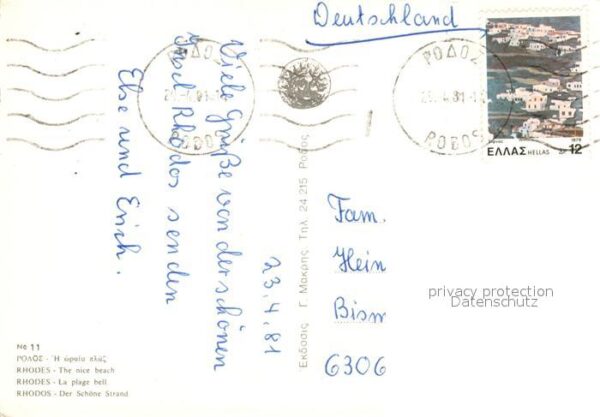 Deutschland
ΡΟΔΟΣ
ΡΟΔΟΣ
81
RODOS
RODOS
ΕΛΛΑΣ HELLAS ΔΡ 12
1979
23.4.81
Viele Grüße von der schönen
Insel Rhodos senden
Else und Erich.
Έκδοσις Γ. Μακρης, Τηλ. 24.215 Ροδος
Fam.
Hein
Bism
6306
privacy protection
Datenschutz
Νο 11
ΡΟΔΟΣ - Ἡ ὡραία πλάζ
RHODES - The nice beach
RHODES - La plage bell
RHODOS - Der Schöne Strand